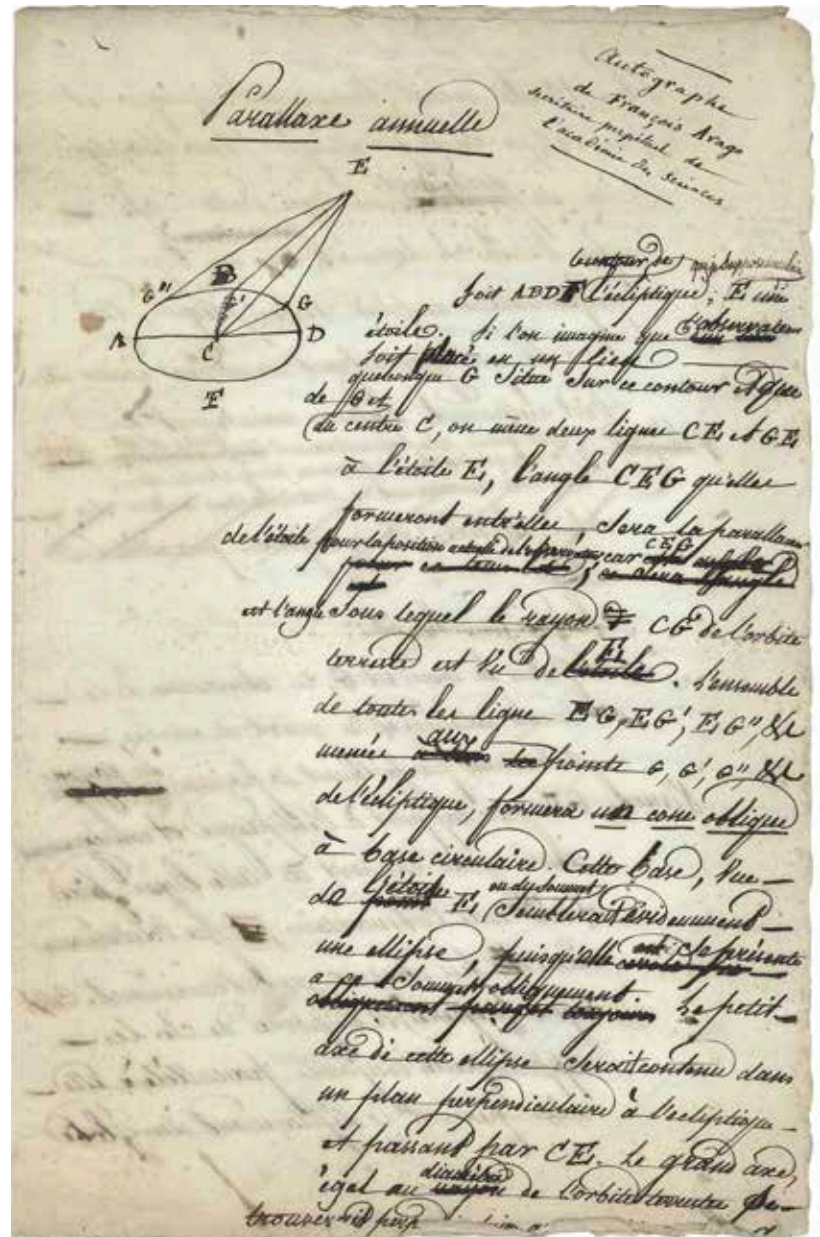 Parallaxe annuelle
Autographe
de François Arago
secrétaire perpétuel de
l'académie des sciences
E
G''' B G' G
A C D
F
contour de
soit ABDF l'écliptique; E une
étoile. Si l'on imagine que l'observateur
soit placé en un lieu
quelconque G situé sur ce contour et que
de G et
du centre C, on mène deux lignes CE et GE
à l'étoile E, l'angle CEG qu'elles
formeront entr'elles, sera la parallaxe
de l'étoile pour la position actuelle de car CEG
est l'angle sous lequel le rayon CG de l'orbite
terrestre est vu de E. L'ensemble
de toutes les ligne EG, EG', EG'', &c
menée aux points G, G', G'' &c
de l'écliptique, formera un cone oblique
à base circulaire. Cette base, vue
de l'étoile E, ou du sommet, semblera évidemment
une ellipse, puisqu'elle se présente
a ce sommet obliquement. Le petit
axe de cette ellipse serait contenu dans
un plan perpendiculaire à l'écliptique
et passant par CE. Le grand axe,
égal au diamètre de l'orbite terrestre se
trouverait perp